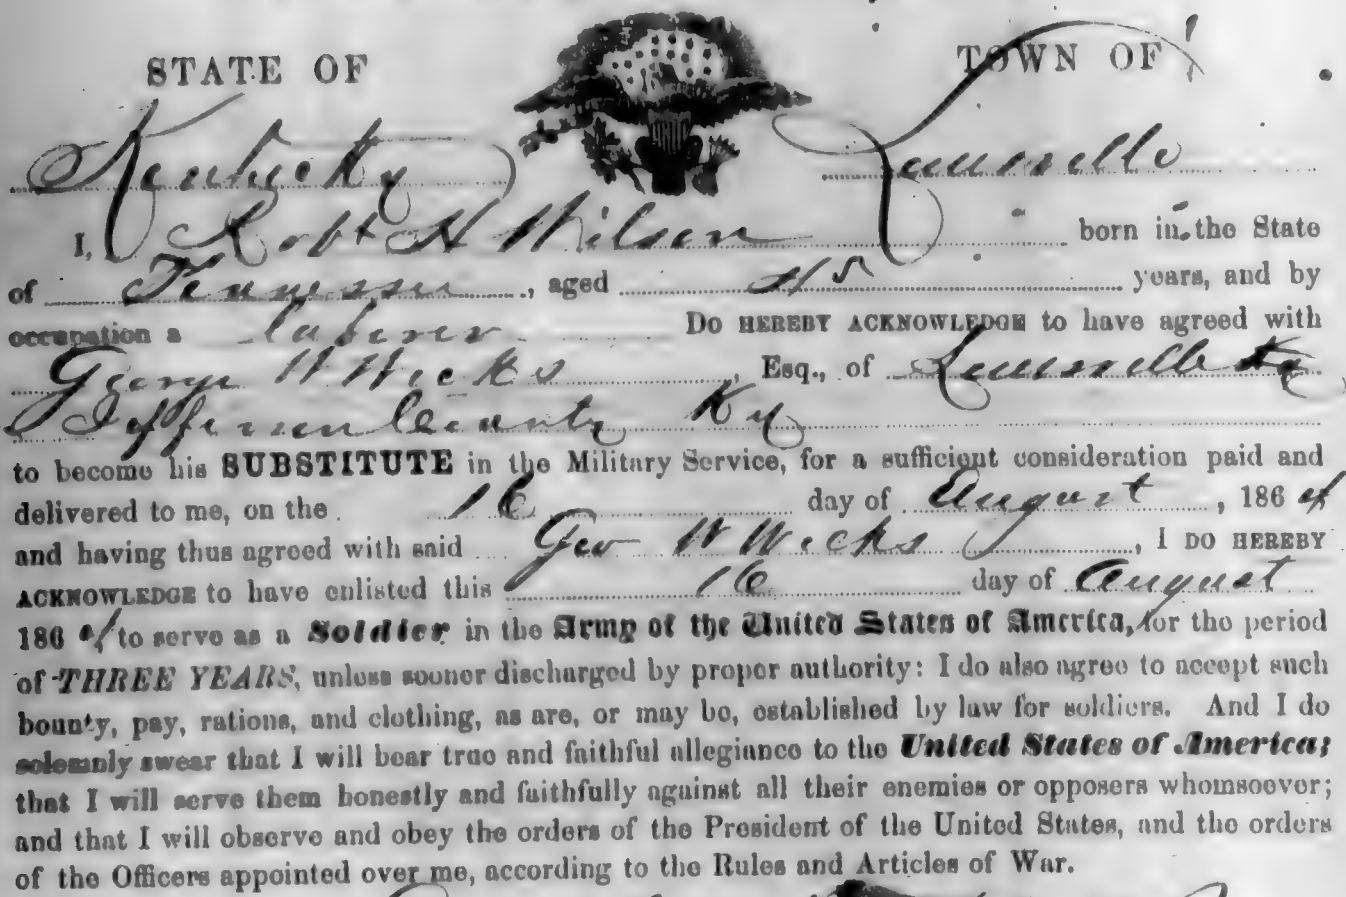 STATE OF TOWN OF
Kentucky Louisville
I, Robt H Wilson born in the State
of Tennessee, aged 45 years, and by
occupation a laborer Do HEREBY ACKNOWLEDGE to have agreed with
George W Wicks, Esq., of Louisville Ky
Jefferson County Ky
to become his SUBSTITUTE in the Military Service, for a sufficient consideration paid and
delivered to me, on the 16 day of August, 1864
and having thus agreed with said Geo W Wicks, I DO HEREBY
ACKNOWLEDGE to have enlisted this 16 day of August
1864 to serve as a Soldier in the Army of the United States of America, for the period
of THREE YEARS, unless sooner discharged by proper authority: I do also agree to accept such
bounty, pay, rations, and clothing, as are, or may be, established by law for soldiers. And I do
solemnly swear that I will bear true and faithful allegiance to the United States of America;
that I will serve them honestly and faithfully against all their enemies or opposers whomsoever;
and that I will observe and obey the orders of the President of the United States, and the orders
of the Officers appointed over me, according to the Rules and Articles of War.